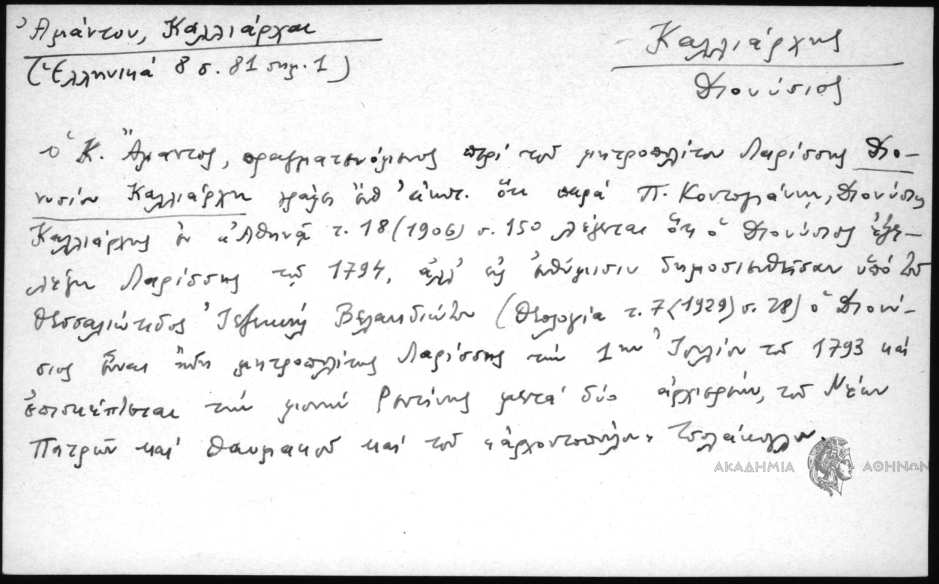 Ἀμάντου, Καλλιάρχαι
(Ἑλληνικά 8 σ. 81 σημ. 1)
Καλλιάρχης
Διονύσιος
Ὁ Κ. Ἄμαντος, πραγματευόμενος περί τοῦ μητροπολίτου Λαρίσσης Διο-
νυσίου Καλλιάρχη γράφει ὅτι παρά Π. Κοντογιάννῃ, Διονύσιος
Καλλιάρχης ἐν «Ἀθηνᾷ» τ. 18 (1906) σ. 150 λέγεται ὅτι ὁ Διονύσιος ἐξε-
λέγη Λαρίσσης τῷ 1794, ἀλλ' εἰς ἐνθύμισιν δημοσιευθεῖσαν ὑπό τοῦ
Θεσσαλιώτιδος Ἰεζεκιήλ Βελανιδιώτου (Θεολογία τ. 7 (1929) σ. 28) ὁ Διονύ-
σιος εἶναι ἤδη μητροπολίτης Λαρίσσης τήν 1ην Ἰουλίου τοῦ 1793 καί
ἐπισκέπτεται τήν μονήν Ρεντίνης μετά δύο ἀρχιερέων, τοῦ Νέων
Πατρῶν καί Θαυμακοῦ καί τοῦ «ἀρχοντοπούλου» Τσολάκογλου.
ΑΚΑΔΗΜΙΑ ΑΘΗΝΩΝ